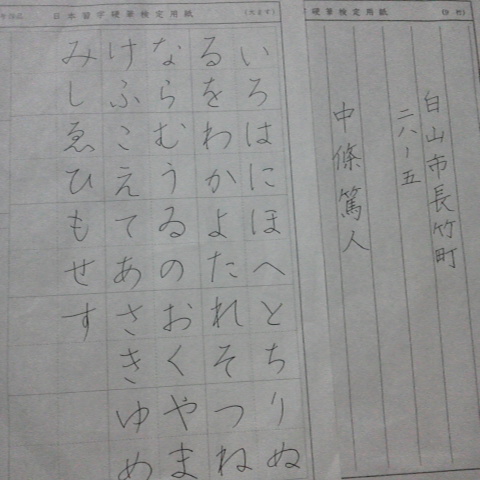 硬筆検定用紙
白山市長竹町
二八ー五
中條篤人
日本習字硬筆検定用紙
いろはにほへとちりぬ
るをわかよたれそつね
ならむうゐのおくやま
けふこえてあさきゆめ
みしゑひもせす